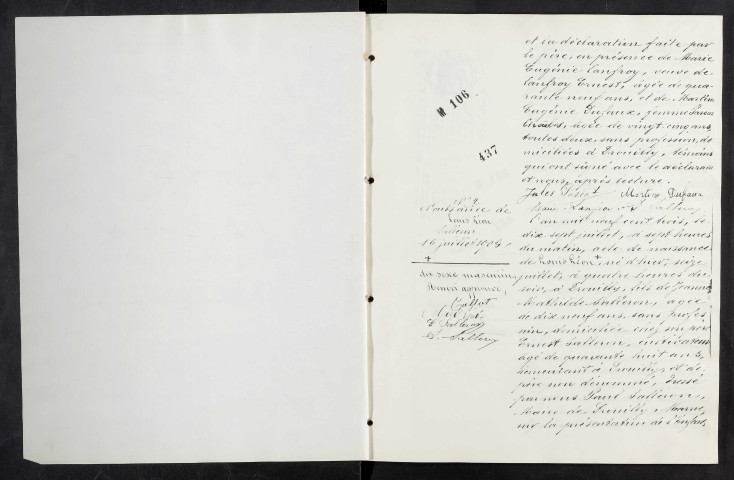 et la déclaration faite par
le père, en présence de Marie
Eugénie Canfroy, veuve de
Canfroy Ernest, âgée de qua-
rante neuf ans, et de Martine
Eugénie Dufaux, femme
âgée de vingt cinq ans,
toutes deux, sans profession, do-
miciliées à Trouilly, témoins
qui ont signé avec le déclarant
et nous, après lecture.
Jules Martine Dufaux
M 106
437
N° 9
Naissance de
Louis Léon
Salleron
16 juillet 1903
+
du sexe masculin,
Renvoi approuvé,
E. Salleron
L'an mil neuf cent trois, le
dix sept juillet, à sept heures
du matin, acte de naissance
de Louis Léon + né d'hier, seize
juillet, à quatre heures du
soir, à Trouilly, fils de Jeanne
Mathilde Salleron, âgée
de dix neuf ans, sans profes-
sion, domiciliée chez son père
Ernest Salleron, cultivateur
âgé de quarante huit ans,
demeurant à Trouilly, et de
père non dénommé, dressé
par nous Paul Salleron,
Maire de Trouilly, Marne,
sur la présentation de l'enfant